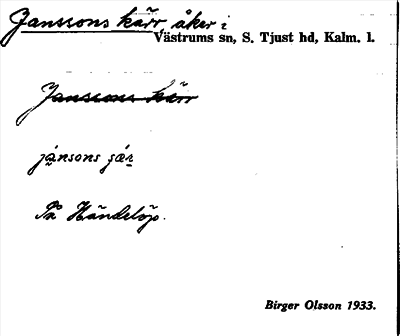 Janssons kärr åker i
Västrums sn, S. Tjust hd, Kalm. l.
Janssons kärr
jánsons
På Händelöp.
Birger Olsson 1933.